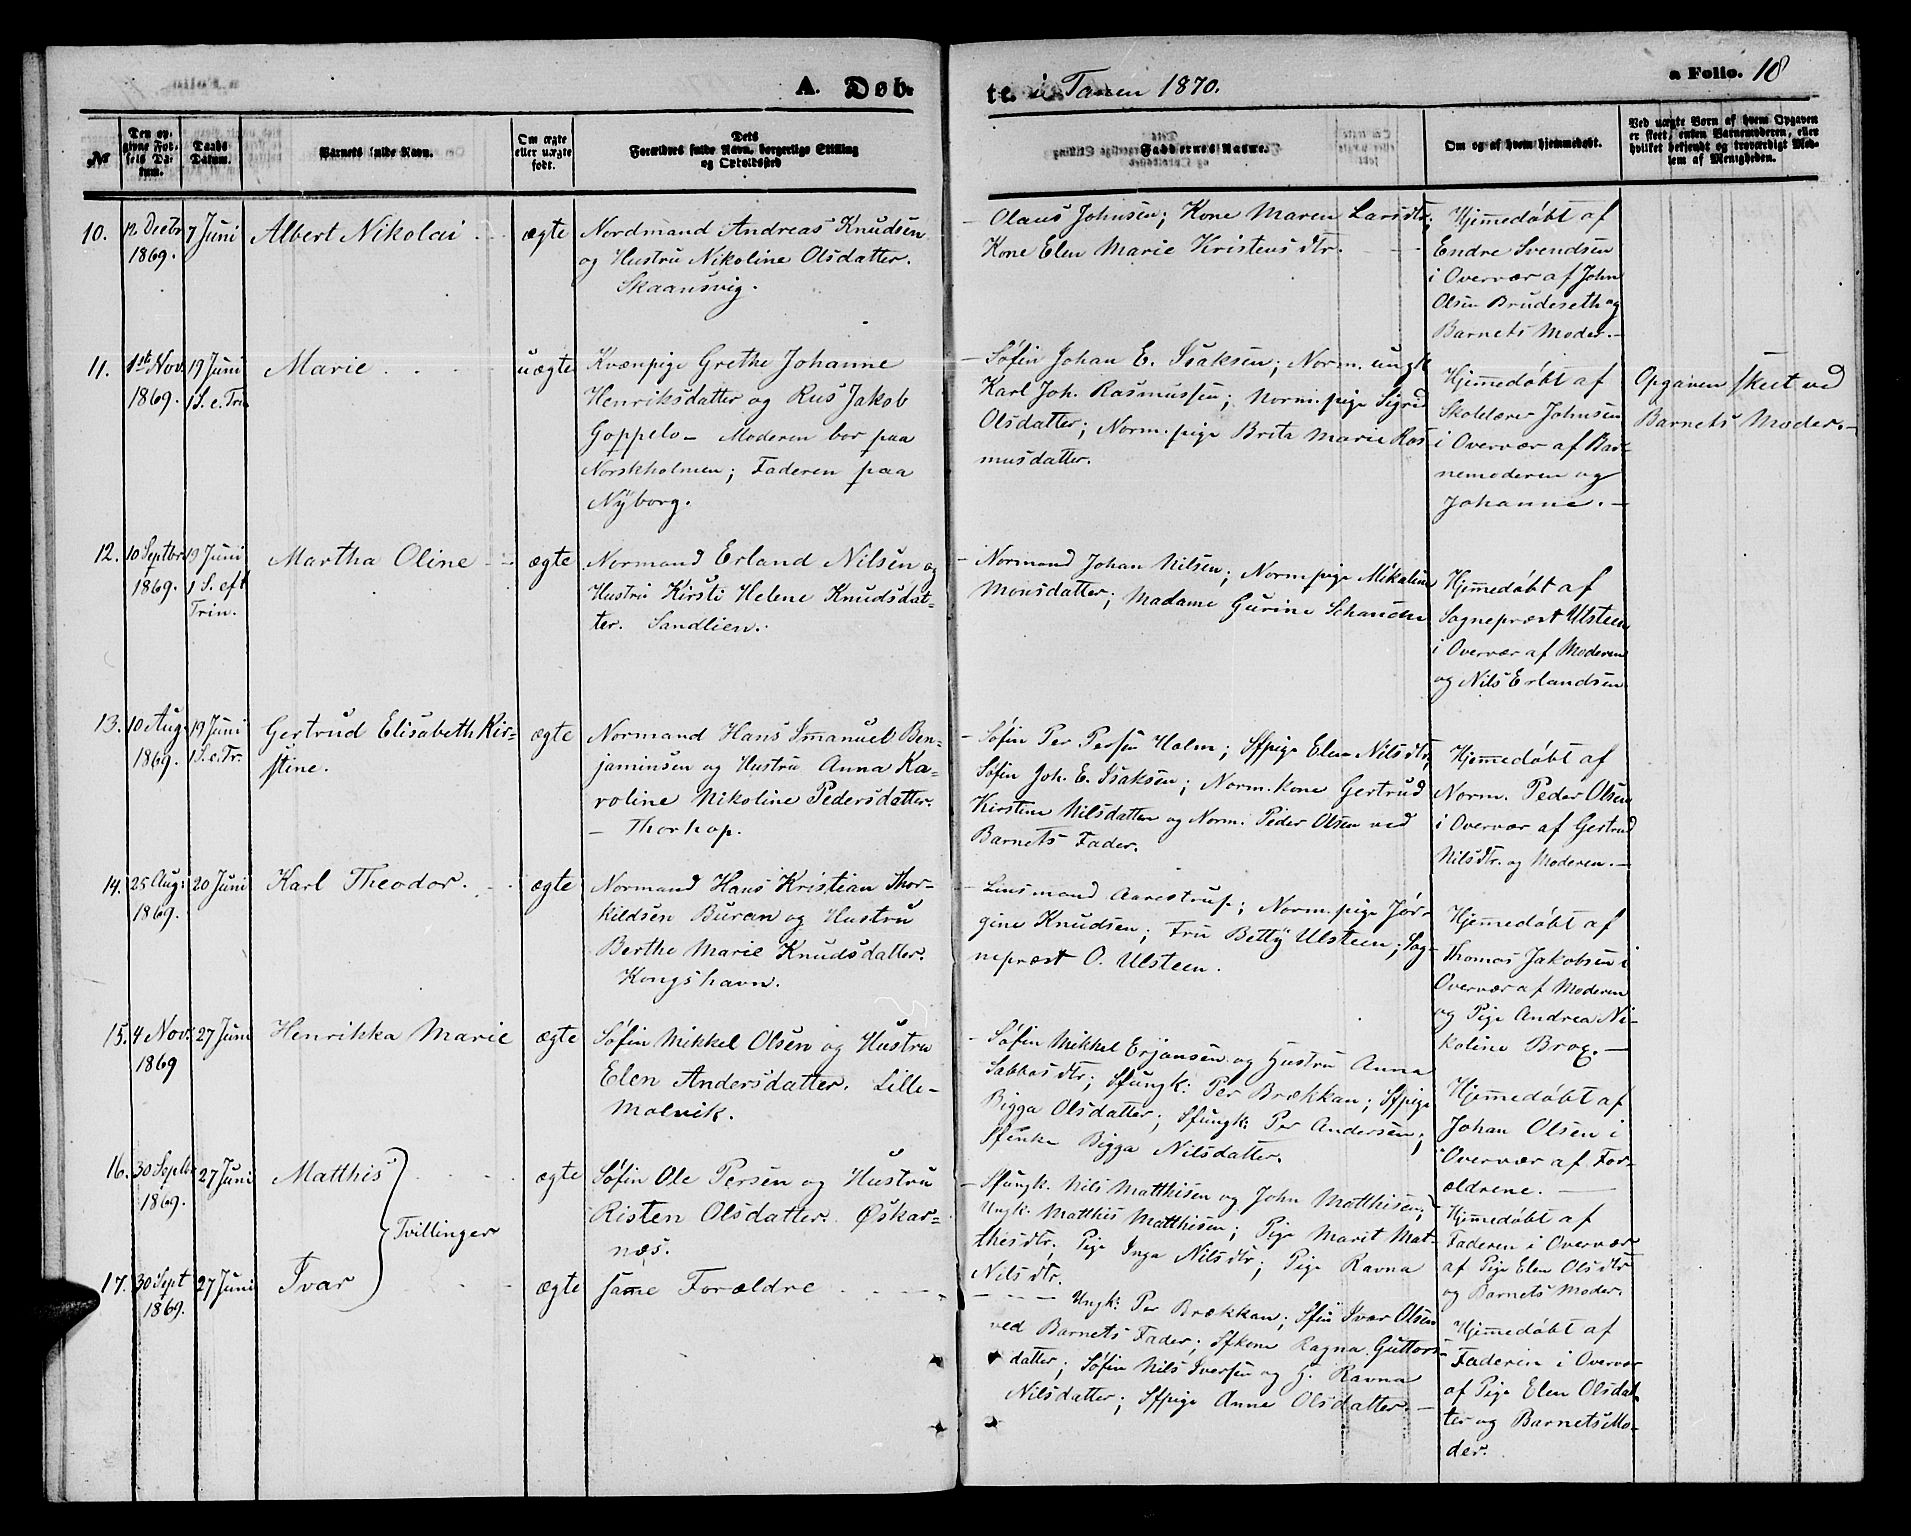 A. Døb-
te. i Tanen 1870.
a Folio. 18
№
Den opgivne Fødsels Datum.
Daabs Datum.
Barnets fulde Navn.
Om ægte eller uægte født.
Dets Forældres fulde Navn, borgerlige Stilling og Opholdssted
Faddernes Navne.
Om og af hvem hjemmedøbt.
Ved uægte Børn af hvem Opgaven er skeet, enten Barnemoderen, eller hvilket bekjendt og troværdigt Medlem af Menigheden.
10.
12 Decbr
1869.
7 Juni
Albert Nikolai
ægte
Nordmand Andreas Knudsen
og Hustru Nikoline Olsdatter.
Skaansvig.
Olaus Johnsen; Kone Maren Larsdtr;
Kone Elen Marie Kristensdtr.
Hjemmedøbt af
Endre Svendsen
i Overvær af John
Olsen Brudeseth og
Barnets Moder.
11.
1ste Nov.
1869.
19 Juni
1 S. e. Trin
Marie
uægte
Kvænpige Grethe Johanne
Henriksdatter og Rus Jakob
Goppelo – Moderen bor paa
Norskholmen; Faderen paa
Nyborg.
Søfin Johan E. Isaksen; Norm. ungk
Karl Joh. Rasmussen; Norm. pige Sigrid
Olsdatter; Norm. pige Brita Marie Ras-
musdatter.
Hjemmedøbt af
Skolelærer Johnsen
i Overvær af Bar-
nemoderen og
Johanne. –
Opgaven skeet ved
Barnets Moder. –
12.
10 Septbr
1869.
19 Juni
1 S. eft
Trin.
Martha Oline
ægte
Normand Erland Nilsen og
Hustru Kirsti Helene Knudsdat-
ter. Sandlien.
– Normand Johan Nilsen; Norm. pige Mikaline
Monsdatter; Madame Gurine Schanche
Hjemmedøbt af
Sognepræst Ulsteen
i Overvær af Moderen
og Nils Erlandsen
13.
10 Aug.
1869.
19 Juni
1 S. e. Tr.
Gertrud Elisabeth Kir-
stine.
ægte
Normand Hans Imanuel Ben-
jaminsen og Hustru Anna Ka-
roline Nikoline Pedersdatter.
– Thorhop.
– Søfin Per Persen Holm; Sfpige Elen Nilsdtr;
Søfin Joh. E. Isaksen; Norm. kone Gertrud
Kirstine Nilsdatter og Norm. Peder Olsen ved
Barnets Fader.
Hjemmedøbt af
Norm. Peder Olsen
i Overvær af Gertrud
Nilsdtr. og Moderen. –
14.
25 Aug:
1869.
20 Juni
Karl Theodor.
ægte
Normand Hans Kristian Thor-
kildsen Buran og Hustru
Berthe Marie Knudsdatter.
Kongshavn.
– Lensmand Aarestrup; Norm. pige Jør-
gine Knudsen; Fru Betty Ulsteen; Sog-
nepræst O. Ulsteen.
Hjemmedøbt af
Thomas Jakobsen i
Overvær af Moderen
og Pige Andrea Ni-
koline Brox. –
15.
4 Nov.
1869
27 Juni
Henrikka Marie
ægte
Søfin Mikkel Olsen og Hustru
Elen Andersdatter. Lille-
Molvik.
– Søfin Mikkel Erjansen og Hustru Anna
Sabbasdtr; Sfungk: Per Brækkan; Sfpige
Bigga Olsdatter; Sfungk: Per Andersen;
Sfenke Bigga Nilsdatter.
Hjemmedøbt af
Johan Olsen i
Overvær af For-
ældrene. –
16.
30 Septb.
1869.
27 Juni
Matthis
Tvillinger
ægte
Søfin Ole Persen og Hustru
Risten Olsdatter. Øskar-
næs.
– Sfungk. Nils Matthisen og John Matthisen;
Ungk: Matthis Matthisen; Pige Marit Mat-
thesdtr; Pige Inga Nilsdtr; Pige Ravna
Nilsdtr.
Hjemmedøbt af
Faderen i Overvær
af Pige Elen Olsdtr
og Barnets Moder.
17.
30 Sept
1869.
27 Juni
Ivar
ægte
Same Forældre
Ungk: Per Brækkan; Sfin Ivar Olsen
ved Barnets Fader; Sfkone Ragna Guttors-
datter; Søfin Nils Iversen og H. Ravna
Nilsdatter; Sfpige Anne Olsdatter. –
Hjemmedøbt af
Faderen i Overvær
af Pige Elen Olsdat-
ter og Barnets Mo-
der.